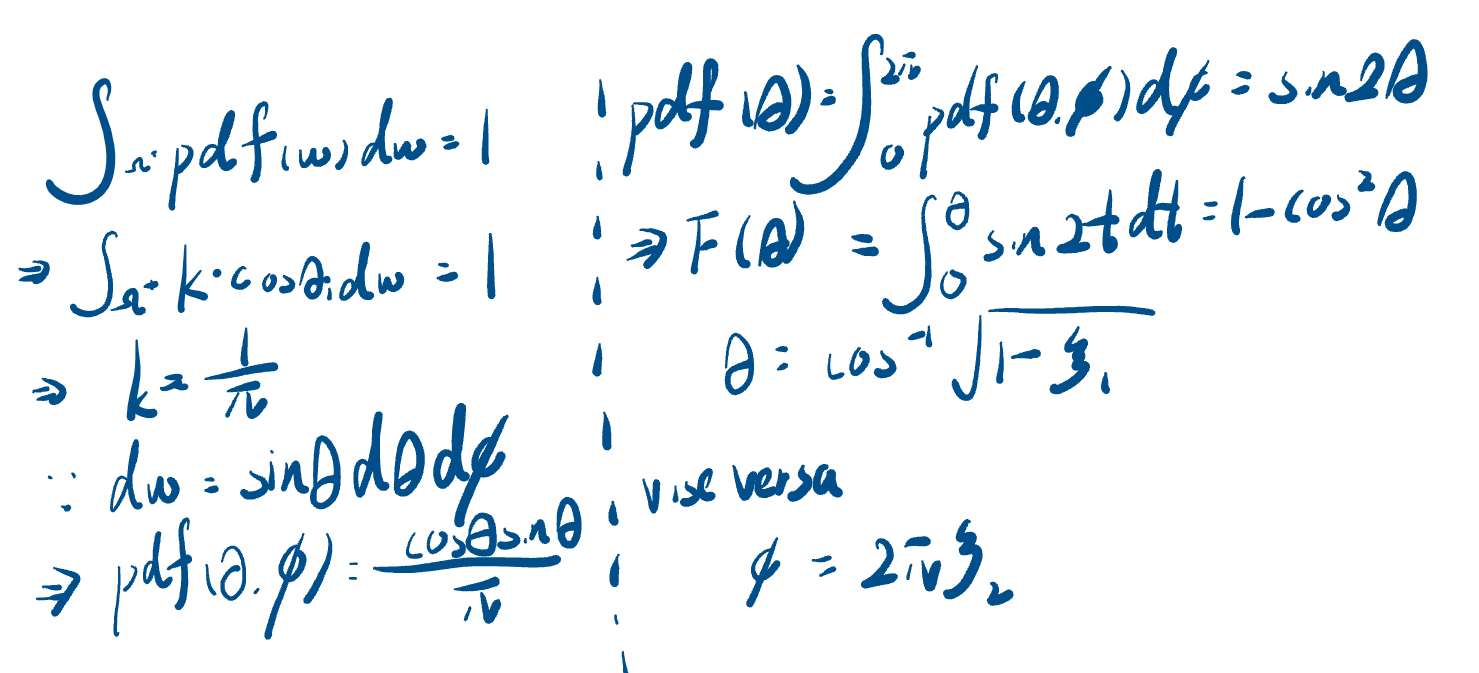 ∫_{Ω⁺} pdf(ω) dω = 1
⇒ ∫_{Ω⁺} k·cosθᵢ dω = 1
⇒ k = 1/π
∵ dω = sinθ dθ dϕ
⇒ pdf(θ.ϕ) = cosθsinθ/π
pdf(θ) = ∫₀^{2π} pdf(θ.ϕ) dϕ = sin2θ
⇒ F(θ) = ∫₀^θ sin2t dt = 1-cos²θ
θ = cos⁻¹√(1-ξ₁)
vise versa
ϕ = 2πξ₂